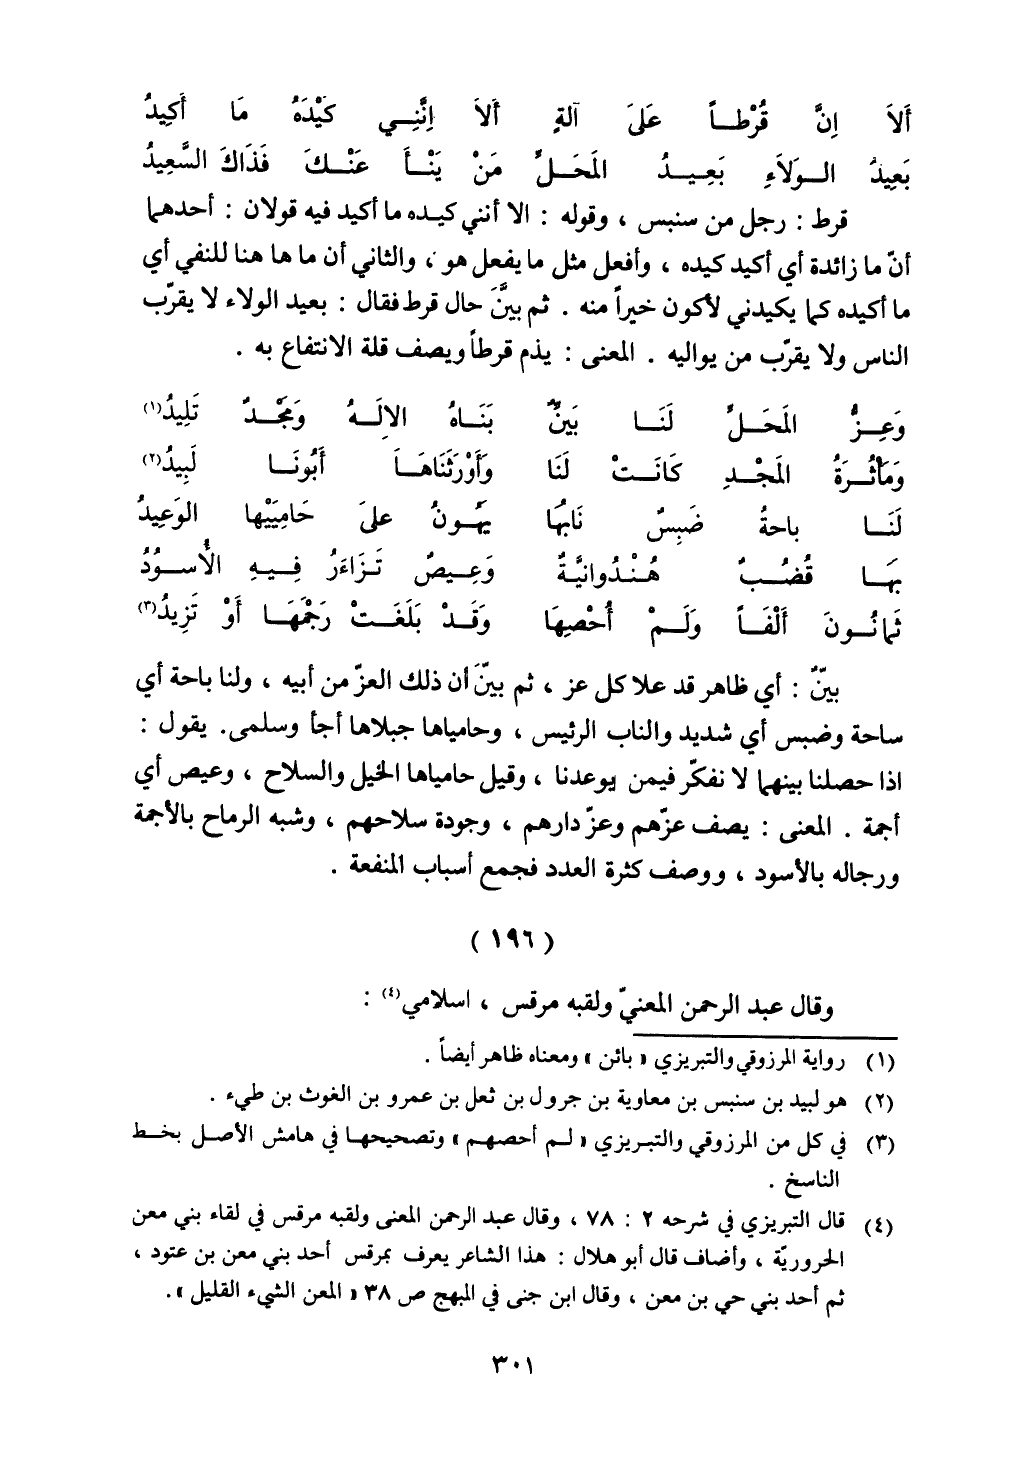 أَلاَ إِنَّ قُرْطـاً عَلىَ آلةٍ أَلاَ إِنَّنِـي كَيْدَهُ مَا أَكِيدُ
بَعِيدُ الـوَلاَءِ بَعِـيـدُ المَحَـلِّ مَنْ يَنْـأَ عَنْـكَ فَذَاكَ السَّعِيدُ
قرط : رجل من سنبس ، وقوله : الا أنني كيده ما أكيد فيه قولان : أحدهما
أنّ ما زائدة أي أكيد كيده ، وأفعل مثل ما يفعل هو ، والثاني أن ما ها هنا للنفي أي
ما أكيده كما يكيدني لأكون خيراً منه . ثم بينَّ حال قرط فقال : بعيد الولاء لا يقرّب
الناس ولا يقرّب من يواليه . المعنى : يذم قرطاً ويصف قلة الانتفاع به .
وَعِـزُّ المَحَـلِّ لَنَـا بَينٌّ بَنَـاهُ الالَـهُ وَمَجْـدٌ تَلِيدُ(١)
وَمَأْثُـرَةُ المَجْـدِ كَانَـتْ لَنَا وَأَوْرَثَنَاهَـا أَبُونَـا لَبِيدُ(٢)
لَنَـا باحةُ ضَبِسٌ نَابُها يَهُونُ علىَ حَامِيَيْها الوَعِيدُ
بَهَـا قُضُـبٌ هُنْـدُوانيَّةٌ وَعِـيصٌ تَـزَاءَرُ فِـيهِ الأُسـوُدُ
ثَمانُـونَ أَلْفَـاً وَلَـمْ أُحْصِهَا وَقَـدْ بَلَغَـتْ رَجْمَهَـا أَوْ تَزِيدُ(٣)
بينٌّ : أي ظاهر قد علا كل عز ، ثم بينَّ أن ذلك العزّ من أبيه ، ولنا باحة أي
ساحة وضبس أي شديد والناب الرئيس ، وحامياها جبلاها أجأ وسلمى. يقول :
اذا حصلنا بينهما لا نفكّر فيمن يوعدنا ، وقيل حامياها الخيل والسلاح ، وعيص أي
أجمة . المعنى : يصف عزّهم وعزّ دارهم ، وجودة سلاحهم ، وشبه الرماح بالأجمة
ورجاله بالأسود ، ووصف كثرة العدد فجمع أسباب المنفعة .
( ١٩٦ )
وقال عبد الرحمن المعنيّ ولقبه مرقس ، اسلامي(٤) :
(١) رواية المرزوقي والتبريزي « بائن » ومعناه ظاهر أيضاً .
(٢) هو لبيد بن سنبس بن معاوية بن جرول بن ثعل بن عمرو بن الغوث بن طيء .
(٣) في كل من المرزوقي والتبريزي « لـم أحصهم » وتصحيحها في هامش الأصل بخـط
الناسخ .
(٤) قال التبريزي في شرحه ٢ : ٧٨ ، وقال عبد الرحمن المعنى ولقبه مرقس في لقاء بني معن
الحروريّة ، وأضاف قال أبو هلال : هذا الشاعر يعرف بمرقس أحد بني معن بن عتود ،
ثم أحد بني حي بن معن ، وقال ابن جنى في المبهج ص ٣٨ « المعن الشيء القليل ».
٣٠١